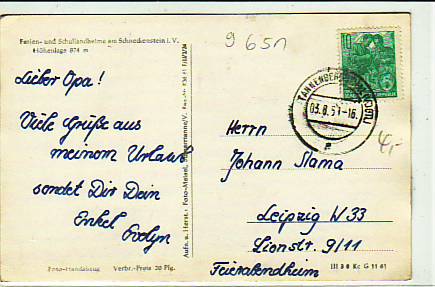 Ferien- und Schullandheime am Schneckenstein i. V.
Höhenlage 874 m
9 651
10
TANNENBERGSTHAL (VOGTL)
03.8.5 -16.
a
4,-
Lieber Opa!
Viele Grüße aus
meinem Urlaub
sendet Dir Dein
Enkel
Evelyn
Herrn
Johann Slama
Leipzig W 33
Lionstr. 9/11
Feierabendheim
Foto-Handabzug Verbr.-Preis 20 Pfg.
Aufn. u. Herst.: Foto-Meisel,
III 3 8 Kc G 11 61